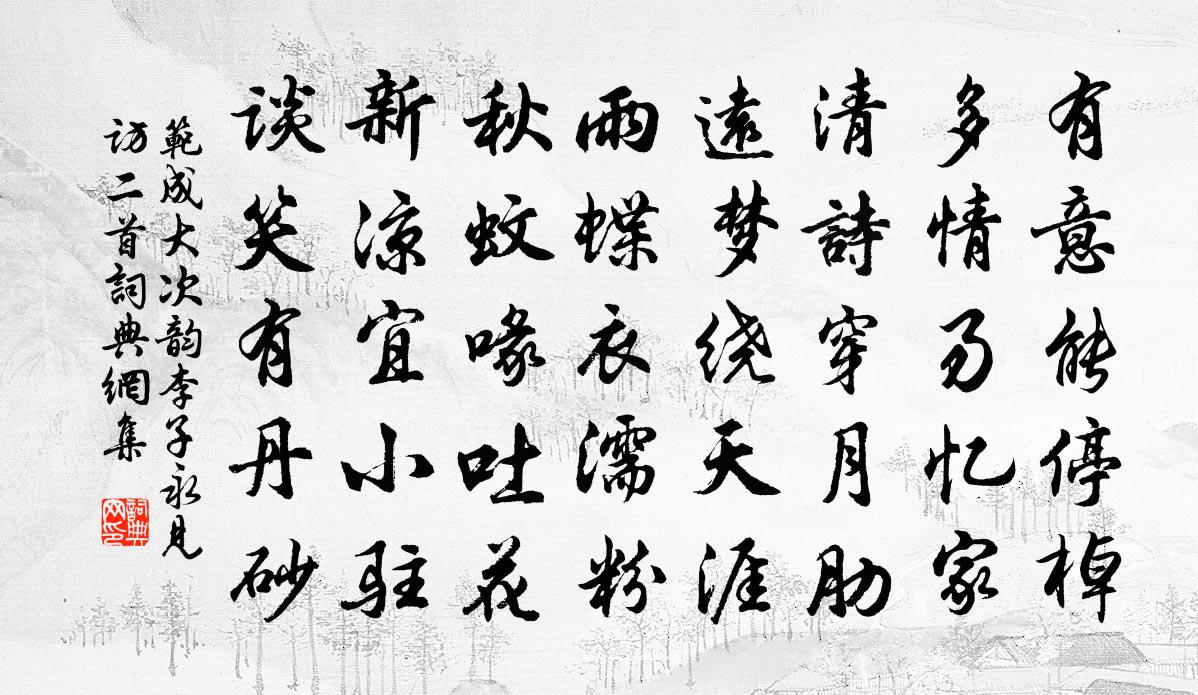 有意能停棹
多情易忆家
清詩穿月肋
遠梦绕天涯
雨蝶衣濡粉
秋蚊喙吐花
新涼宜小駐
谈笑有丹砂
範成大次韵李子永見
访二首詞典網集
詞典网印